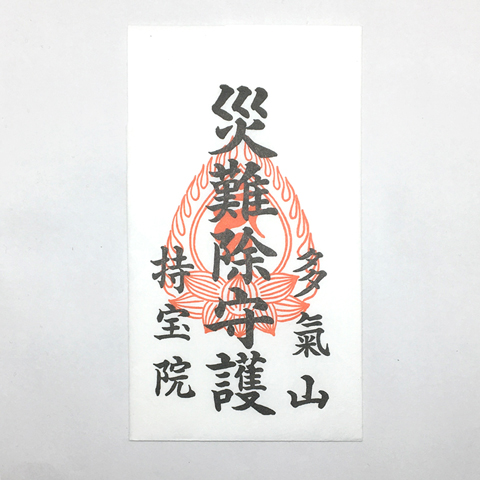 多氣山
災難除守護
持宝院